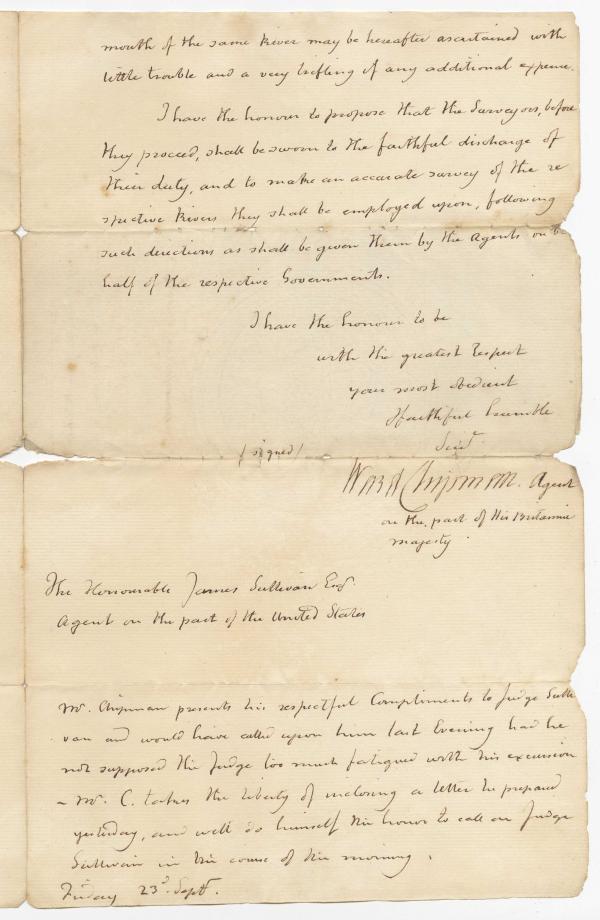 mouth of the same River may be hereafter ascertained with
little trouble and a very trifling if any additional expence.
I have the honour to propose that the Surveyors, before
they proceed, shall be sworn to the faithful discharge of
their duty, and to make an accurate survey of the re
spective Rivers they shall be employed upon, following
such directions as shall be given them by the Agents on be
half of the respective Governments.
I have the honour to be
with the greatest respect
your most obedient
& faithful humble
Servt.
(signed)
Ward Chipman. Agent
on the part of His Britannic
majesty.
The Honourable James Sullivan Esqr.
Agent on the part of the United States
Mr. Chipman presents his respectful Compliments to Judge Sulli
van and would have called upon him last Evening had he
not supposed the Judge too much fatigued with his excursion
– Mr. C. takes the liberty of inclosing a letter he prepared
yesterday, and will do himself the honor to call on Judge
Sullivan in the course of the morning.
Friday 23d. Sept.